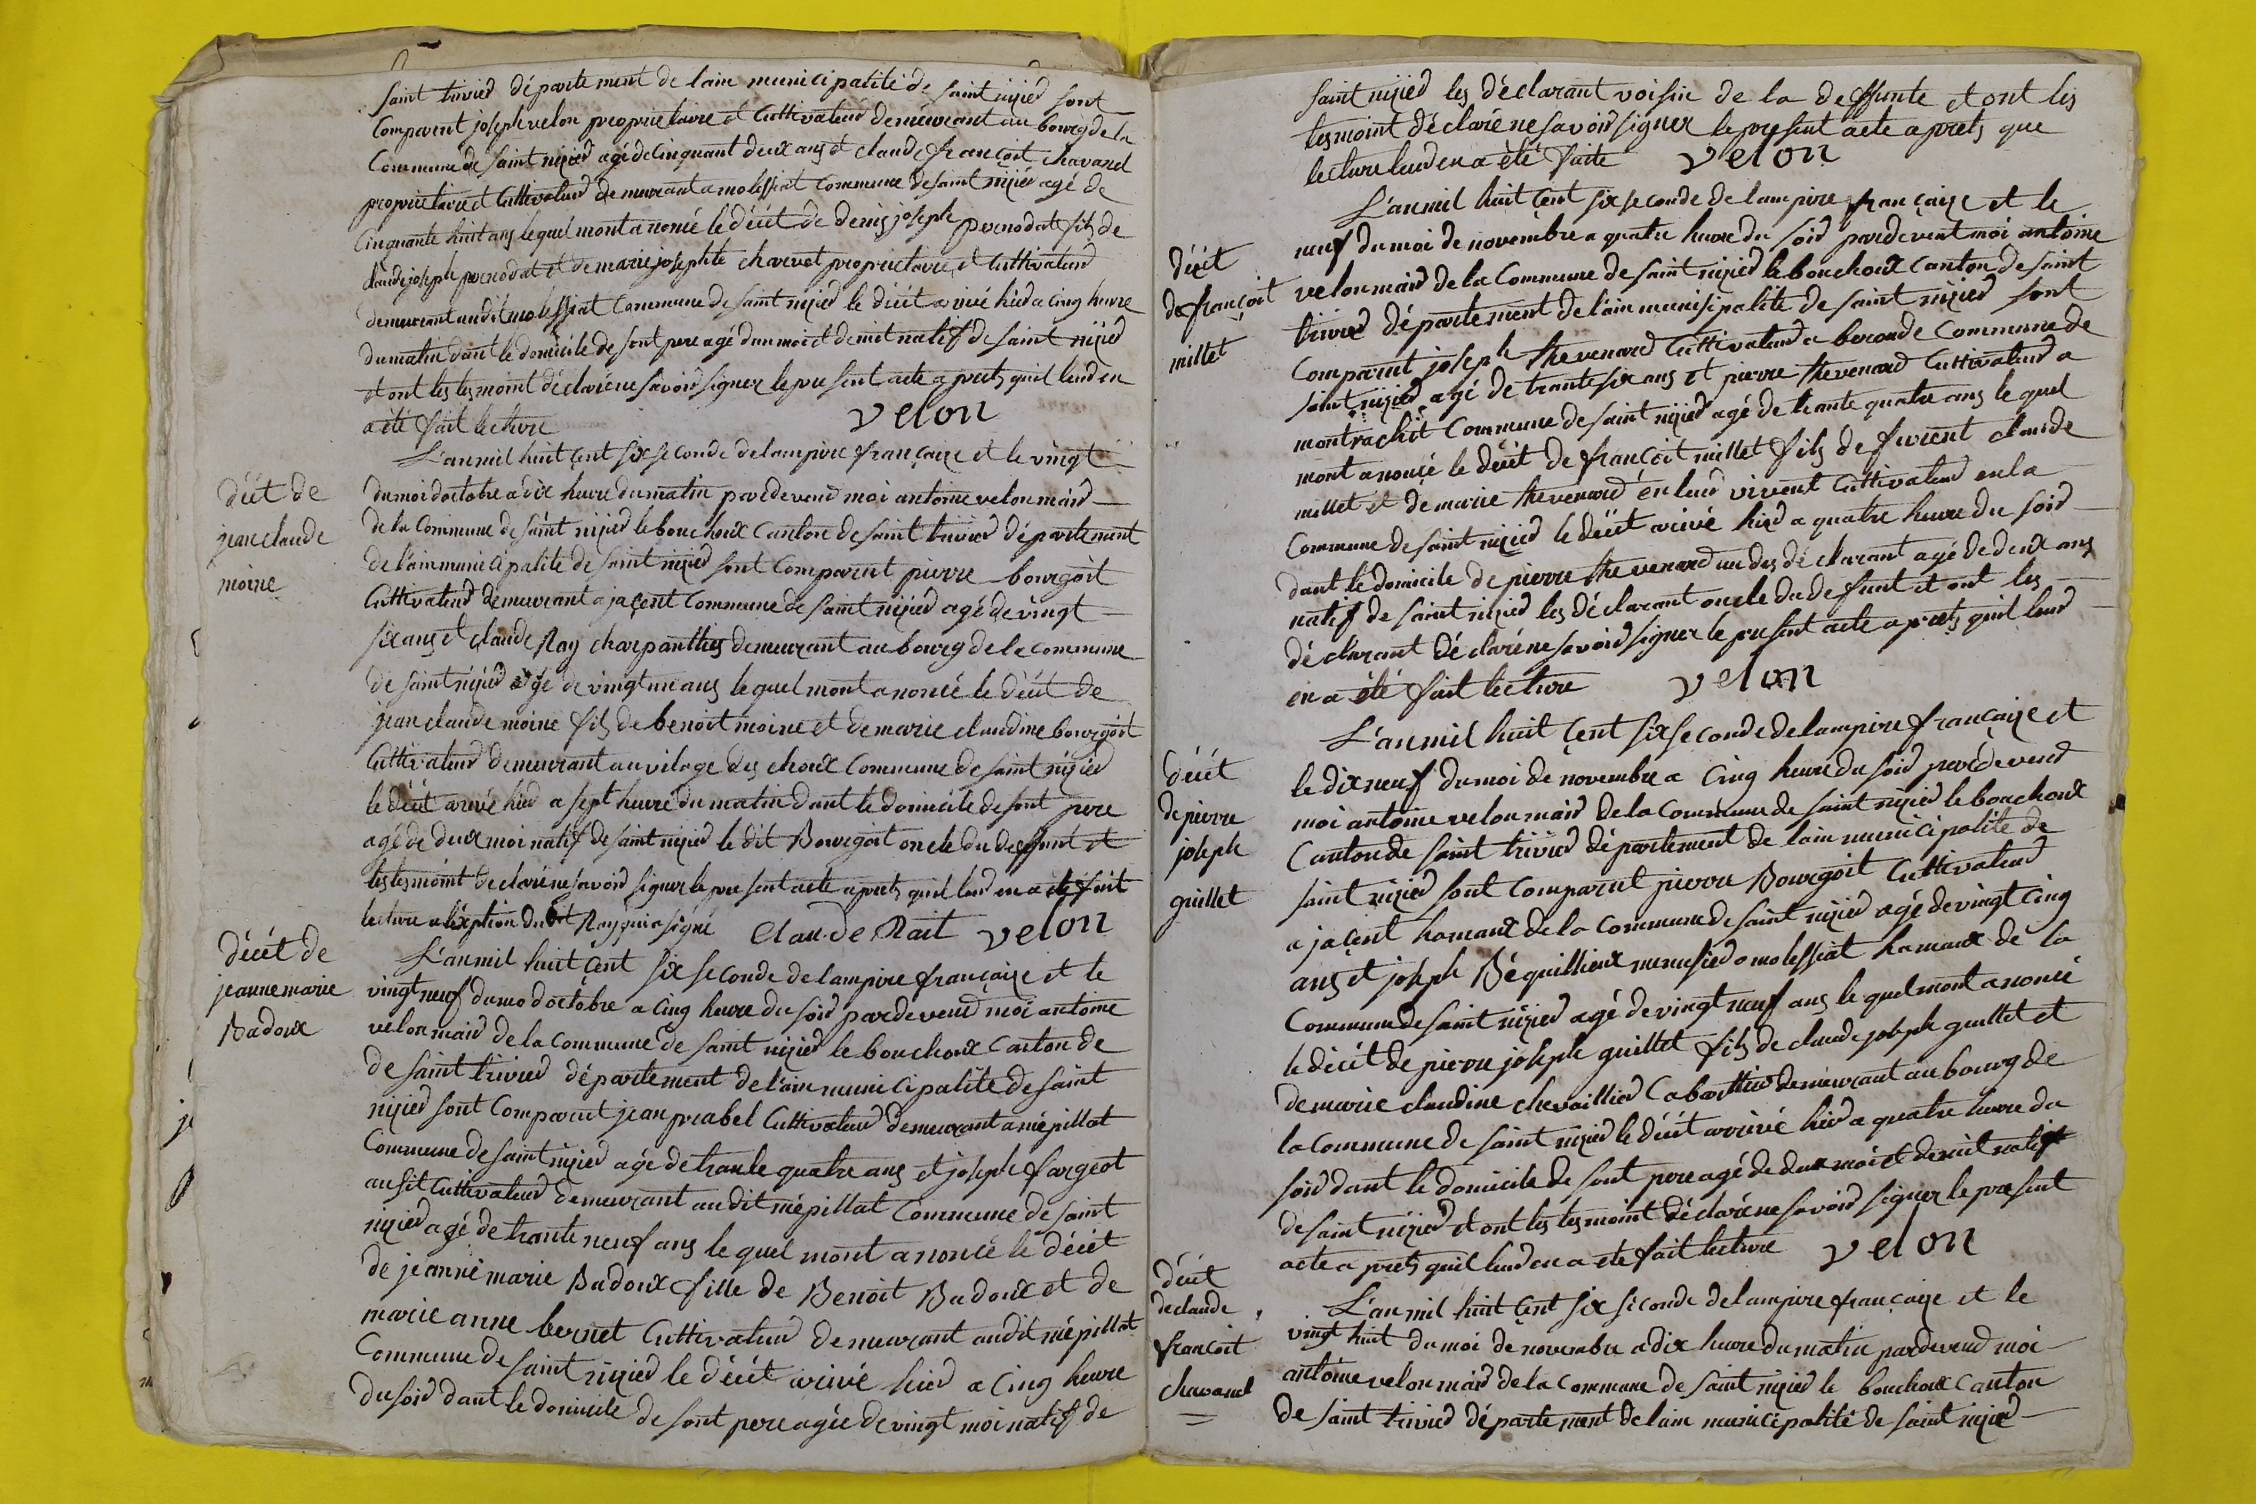 saint trivied département de lain municipalité de saint nizied sont
Comparent joseph velon proprietaire et Cuttivateud demeurant au bourg de la
Commune de saint nizied agé de Cinquant deux ans et claude françoit chavanel
proprietaire et Cuttivateud demeurant a molessiat Commune de saint nizied agé de
Cinquante huit ans lequel mont anoncé le décét de denis joseph pernodat fils de
claude joseph pernodat et de marie josephte charvet proprietaire et Cuttivateud
demeurant audit molessiat Commune de saint nizied le décét arivé hied a Cinq heure
du matin dant le domicile de sont pere agé dun moi et demit natif de saint nizied
et ont les tesmoint déclaré ne savoid signer le present acte aprets quil leud en
a été fait lecture velon
décét de
jean claude
moine
L'an mil huit çent six seconde de lampire françaize et le vingt
du moi doctobre a dix heure du matin pardevend moi antoine velon maid
de la Commune de saint nizied le bouchoux Canton de saint trivied département
de lain municipalité de saint nizied sont Comparent pierre bourgoit
Cuttivateud demeurant a jaçent Commune de saint nizied agé de vingt
six ans et claude Ray charpanttier demeurant au bourg de la commune
de saint nizied agé de vingt un ans lequel mont anoncé le décét de
jean claude moine fils de benoit moine et de marie claudine bourgoit
Cuttivateud demeurant au vilage des choux Commune de saint nizied
le décét arivé hied a sept heure du matin dant le domicile de sont pere
agé de deux moi natif de saint nizied le dit Bourgoit oncle du deffunt et
les tesmoint declaré ne savoid signer le present acte aprets quil leud en a été fait
lecture a léxption dudit Ray qui a signé Claude Rait velon
décét de
jeanne marie
Badoux
L'an mil huit çent six seconde de lampire françaize et le
vingt neuf du mo doctobre a Cinq heure du soid pardevend moi antoine
velon maid de la Commune de saint nizied le bouchoux Canton de
de saint trivied département de lain municipalité de saint
nizied sont Comparent jean prabel Cuttivateud demeurant a mépillat
Commune de saint nizied agé de trante quatre ans et joseph fargeot
ausit Cuttivateud demeurant audit mépillat Commune de saint
nizied agé de trante neuf ans lequel mont anoncé le décét
de jeanne marie Badoux fille de Benoit Badoux et de
marie anne bernet Cuttivateud demeurant audit mépillat
Commune de saint nizied le décét arivé hied a Cinq heure
du soid dant le domicile de sont pere agée de vingt moi natif de
saint nizied les déclarant voisin de la deffunte et ont les
tesmoint déclaré ne savoid signer le present acte aprets que
lecture leud en a été faite velon
décét
de françoit
millet
L'an mil huit çent six seconde de lampire françaize et le
neuf du moi de novembre a quatre heure du soid pardevent moi antoine
velon maid de la Commune de saint nizied le bouchoux Canton de saint
trivied département de lain munisipalité de saint nizied sont
Comparent joseph thevenard Cuttivateud a beronde Commune de
saint nizied agé de trante six ans et pierre thevenard Cuttivateud a
montrachit Commune de saint nizied agé de trante quatre ans lequel
mont anonçé le décét de françoit millet fils de furent claude
millet et de marie thevenard en leud vivent Cuttivateud en la
Commune de saint nizied le décét arivé hied a quatre heure du soid
dant le domicile de pierre thevenard un des déclarant agé de deux ans
natif de saint nizied les déclarant oncle du defunt et ont les
déclarant déclaré ne savoid signer le present acte aprets quil leud
en a été fait lecture velon
décét
de pierre
joseph
guillet
L'an mil huit çent six seconde de lampire françaize et
le dix neuf du moi de novembre a Cinq heure du soid pardevend
moi antoine velon maid de la Commune de saint nizied le bouchoux
Canton de saint trivied département de lain municipalité de
saint nizied sont Comparent pierre Bourgoit Cuttivateud
a jaçent hamaux de la Commune de saint nizied agé de vingt Cinq
ans et joseph Béquillieux menusied a molessiat hamaux de la
Commune de saint nizied agé de vingt neuf ans lequel mont anoncé
le décét de pierre joseph guillet fils de claude joseph guillet et
de marie claudine chevaillied Cabarttied demeurant au bourg de
la Commune de saint nizied le décét arrivé hied a quatre heure du
soid dant le domicile de sont pere agé de deux moi et demit natif
de saint nizied et ont les tesmoint déclaré ne savoid signer le present
acte aprets quil leud en a été fait lecture velon
décét
de claude
françoit
chavanel
L'an mil huit çent six seconde de lampire françaize et le
vingt huit du moi de novembre a dix heure du matin pardevend moi
antoine velon maid de la commune de saint nizied le bouchoux Canton
de saint trivied département de lain municipalité de saint nizied